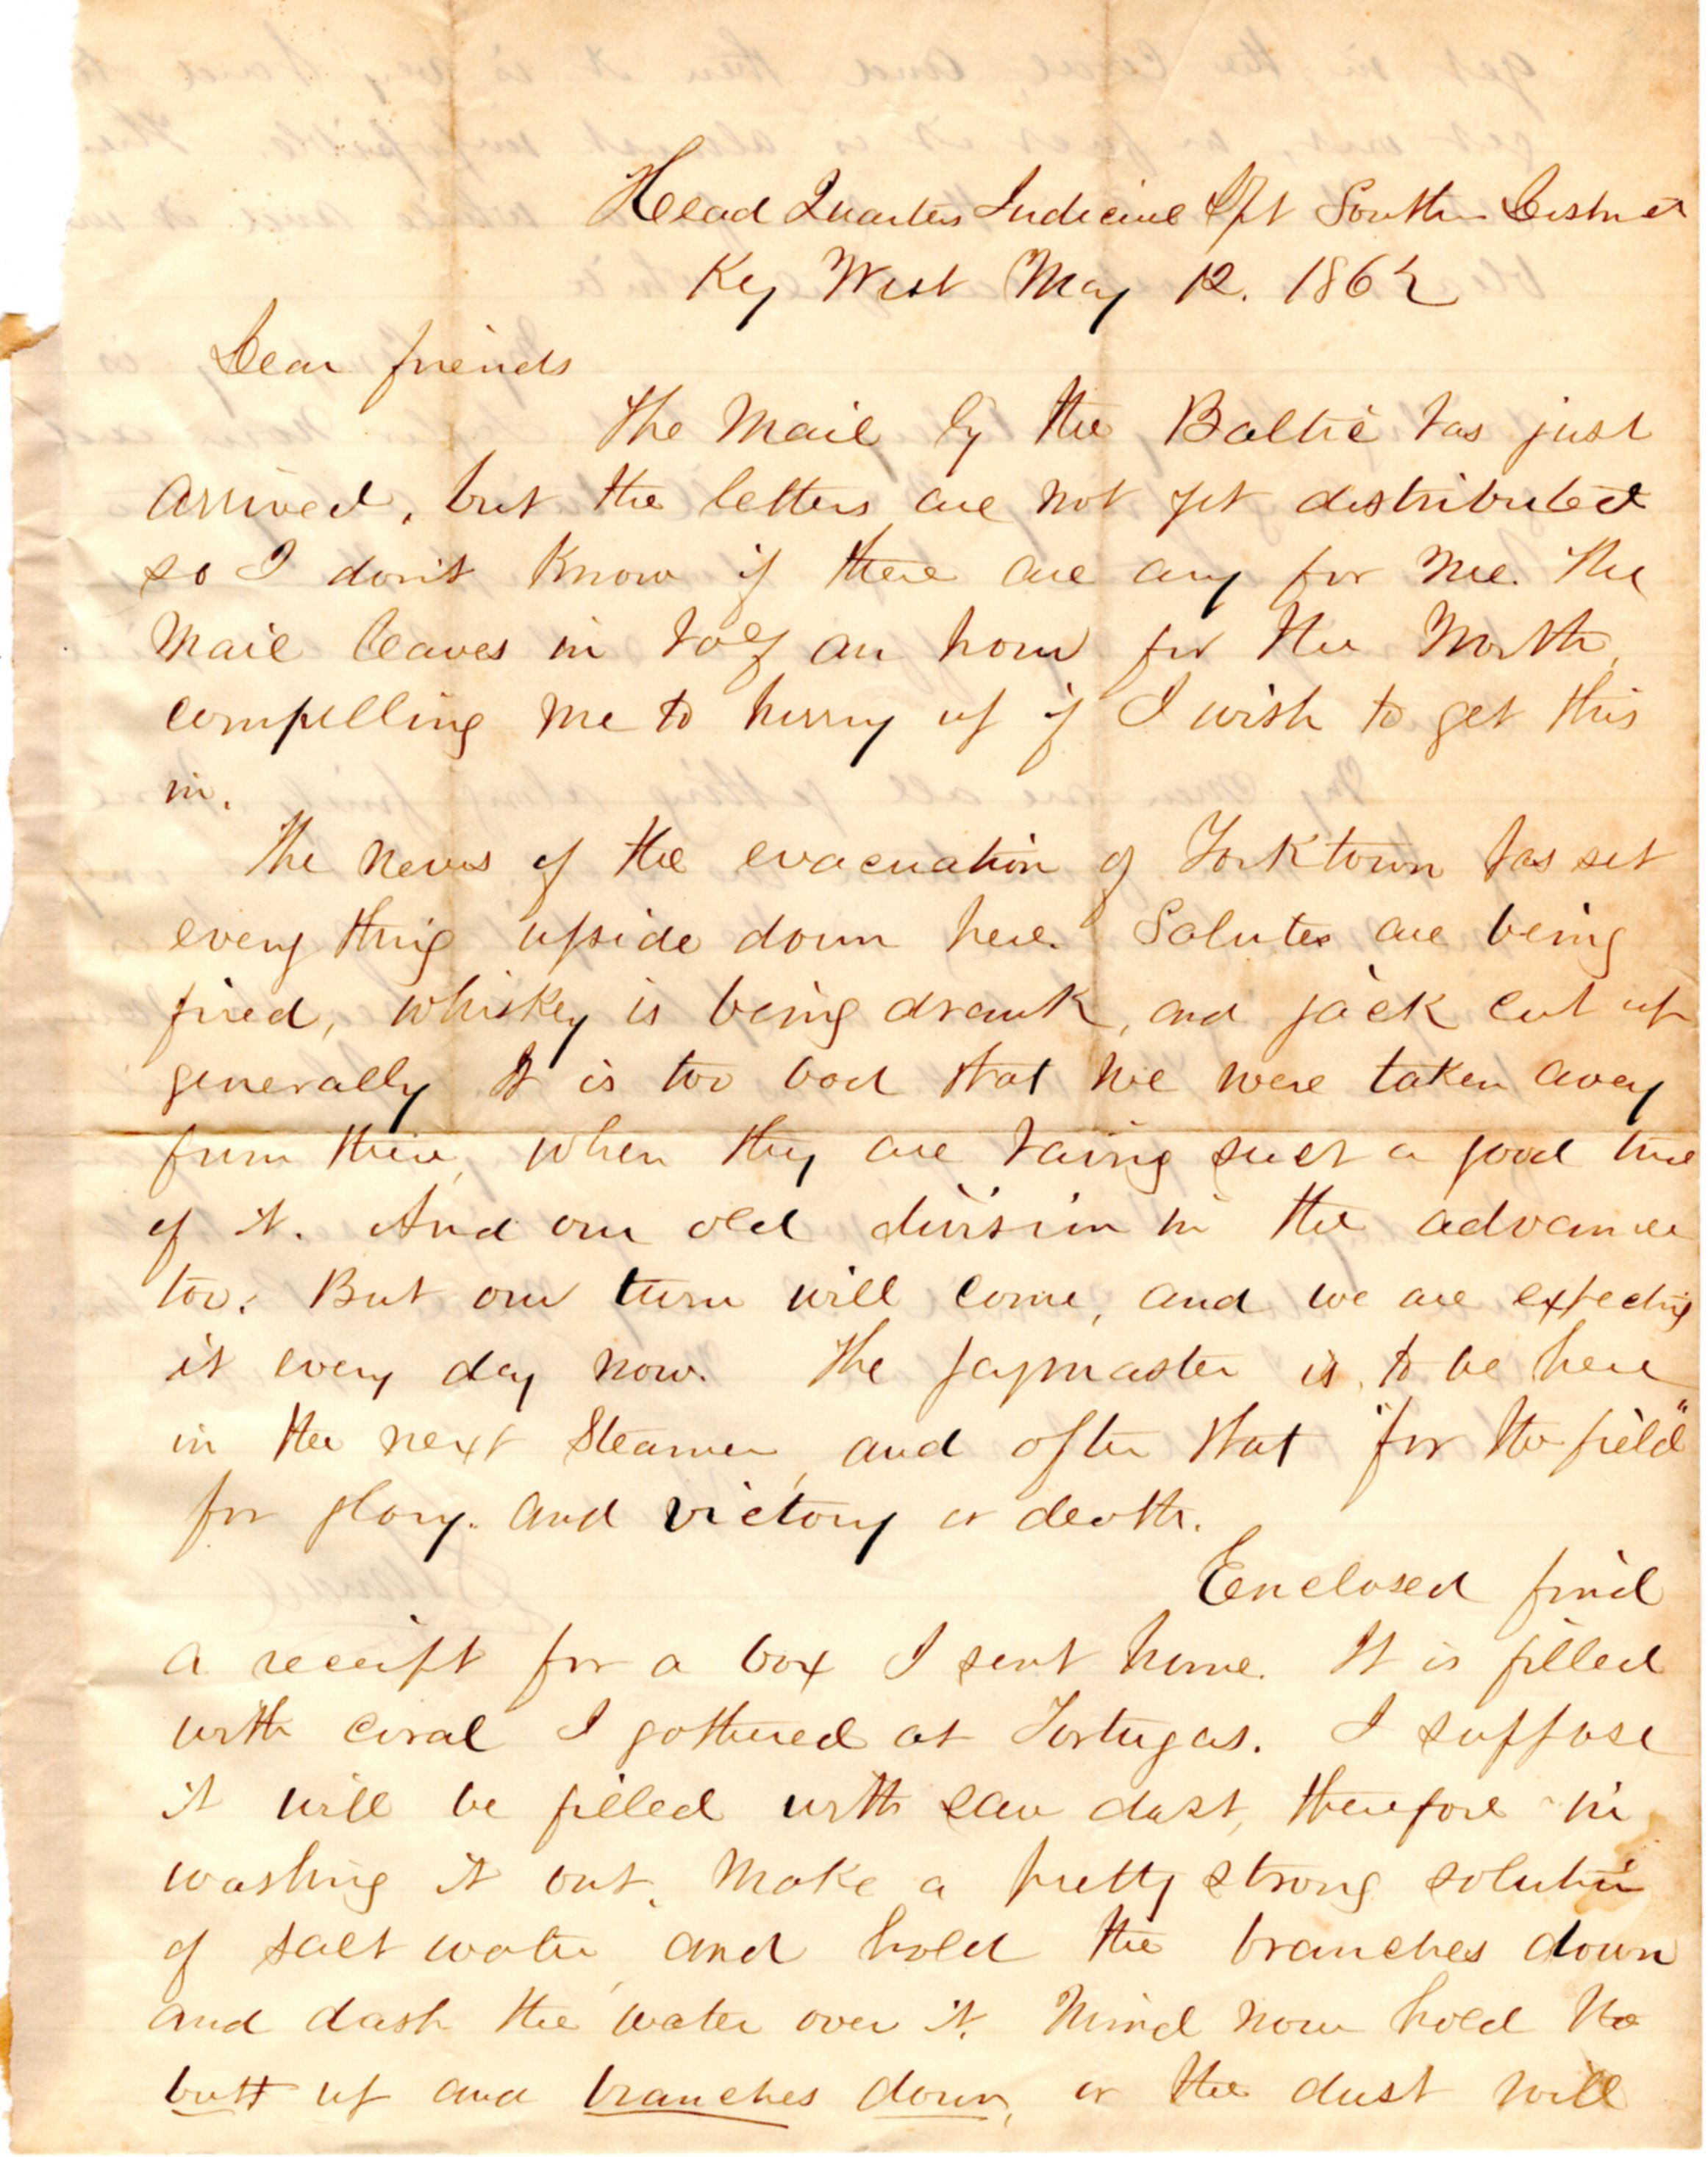 Head Quarters Medicine Dpt South District
Key West May 12. 1862
Dear friends
The Mail by the Baltic has just
arrived, but the letters are not yet distributed
so I don't know if there are any for me. The
Mail leaves in half an hour for the North,
compelling me to hurry up if I wish to get this
in.
The news of the evacuation of Yorktown has set
every thing upside down here. Salutes are being
fired, whiskey is being drank, and jack cut up
generally It is too bad that we were taken away
from there, when they are having such a good time
of it. And our old division in the advance
too. But our turn will come, and we are expecting
it every day now. The paymaster is to be here
in the next Steamer, and after that "for the field"
for glory. and victory or death.
Enclosed find
a receipt for a box I sent home. It is filled
with coral I gathered at Tortugas. I suppose
it will be filled with saw dust, therefore in
washing it out, make a pretty strong solution
of salt water, and hold the branches down
and dash the water over it. Mind now hold the
butt up and branches down, or the dust will